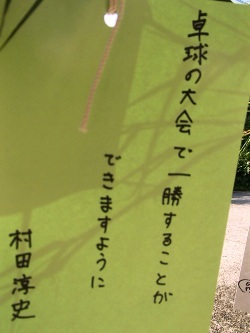 卓球の大会で一勝することが
できますように
村田淳史